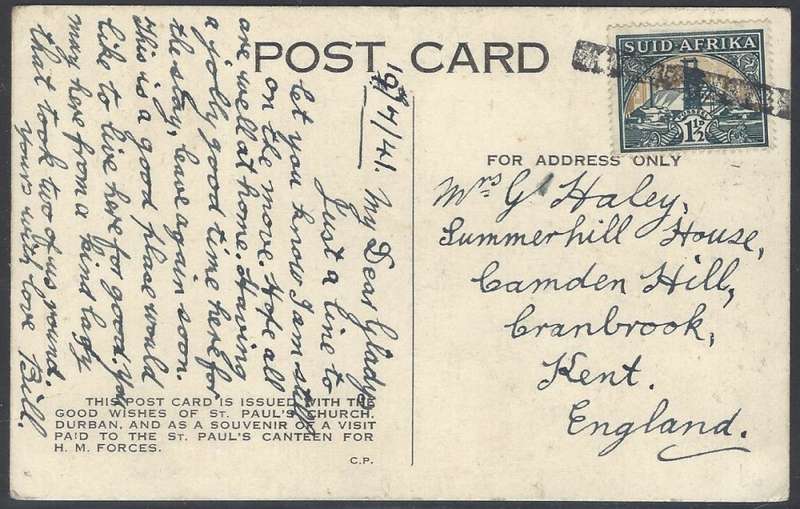 POST CARD
SUID-AFRIKA
POSSEËL
1½
FOR ADDRESS ONLY
Mrs G Haley,
Summerhill House,
Camden Hill,
Cranbrook,
Kent.
England.
19/7/41. My Dear Gladys
Just a line to
let you know I am still
on the move. Hope all
are well at home. Having
a jolly good time here for
the stay, leave again soon.
This is a good place would
like to live here for good. You
may hear from a kind lady
that took two of us round.
Yours with love Bill.
THIS POST CARD IS ISSUED WITH THE
GOOD WISHES OF ST. PAUL'S CHURCH,
DURBAN, AND AS A SOUVENIR OF A VISIT
PAID TO THE ST. PAUL'S CANTEEN FOR
H. M. FORCES.
C.P.